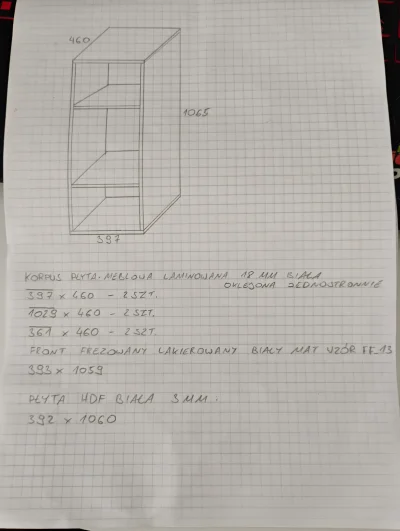 460
1065
397
KORPUS PŁYTA MEBLOWA LAMINOWANA 18 MM BIAŁA
OKLEJONA JEDNOSTRONNIE
397 x 460 - 2 SZT.
1029 x 460 - 2 SZT.
361 x 460 - 2 SZT.
FRONT FREZOWANY LAKIEROWANY BIAŁY MAT WZÓR FF_13
393 x 1059
PŁYTA HDF BIAŁA 3MM.
392 x 1060